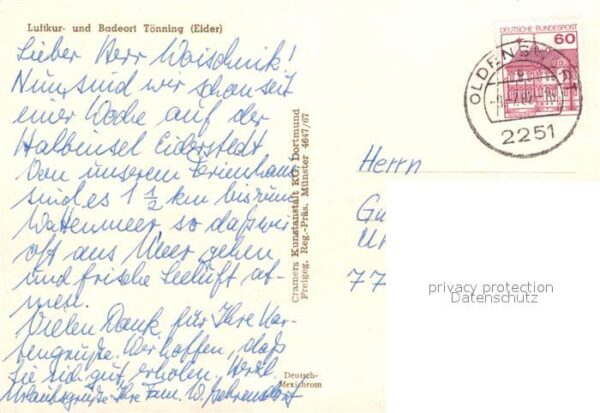 Luftkur- und Badeort Tönning (Eider)
Lieber Herr Woischnik!
Nun sind wir schon seit
einer Woche auf der
Halbinsel Eiderstedt
Von unserem Ferienhaus
sind es 1 1/2 km bis zum
Wattenmeer, so daß wir
oft ans Meer gehen
und frische Seeluft at-
men.
Vielen Dank für Ihre Kar-
tengrüße. Wir hoffen, daß
Sie sich gut erholen. Herzl.
Urlaubsgrüße Ihre Fam. W. Behrendorf
Cramers Kunstanstalt KG, Dortmund
Freigeg. Reg.-Präs. Münster 4647/67
Deutsch-
Mexichrom
DEUTSCHE BUNDESPOST
60
OLDENSWORT
2251
Herrn
Gu
Ur
77
privacy protection
Datenschutz